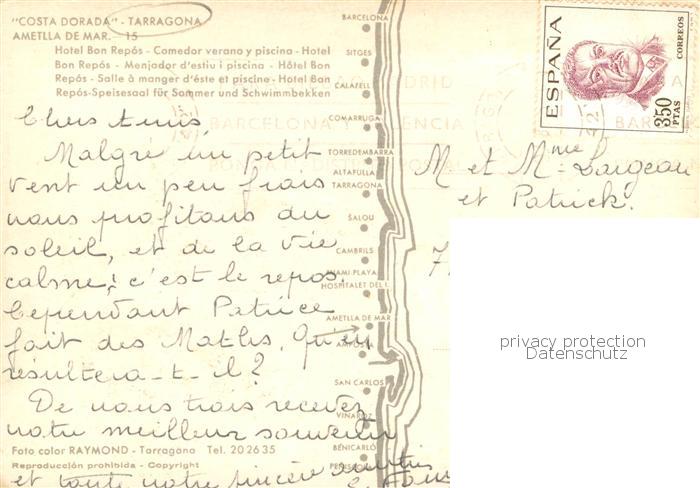 "COSTA DORADA" - TARRAGONA
AMETLLA DE MAR. - 15
Hotel Bon Repós - Comedor verano y piscina - Hotel
Bon Repos - Menjador d'estiu i piscina - Hôtel Bon
Repos - Salle à manger d'éste et piscine - Hotel Bon
Repós-Speisesaal für Sommer und Schwimmbekken
Chers Amis,
Malgré un petit
vent un peu frais
nous profitons du
soleil, et de la vie
calme; c'est le repos.
Cependant Patrice
fait des Maths. Qu'en
résultera-t-il?
De nous trois recevez
notre meilleur souvenir
et toute notre sincère
Foto color RAYMOND - Tarragona Tel. 20 26 35
Reproducción prohibida - Copyright
BARCELONA
SITGES
CALAFELL
COMARRUGA
TORREDEMBARRA
ALTAFULLA
TARRAGONA
SALOU
CAMBRILS
MIAMI PLAYA
HOSPITALET DEL I.
AMETLLA DE MAR
SAN CARLOS
VINAROZ
BENICARLÓ
PEÑISCOLA
BARCELONA Y
ESPAÑA
CORREOS
3'50
PTAS
M et Mme Largeau
et Patrick.
7
privacy protection
Datenschutz